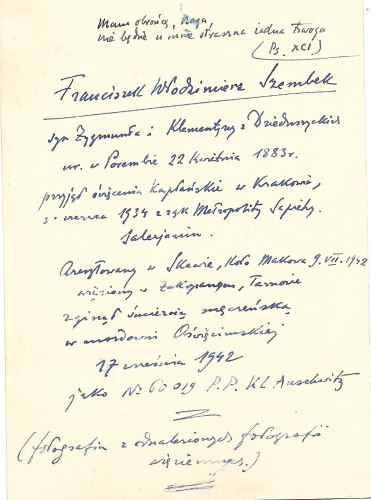 Mam obrońcę, Boga,
nie będzie u mnie straszna żadna trwoga
(Ps. XCI)
Franciszek Włodzimierz Szembek
syn Zygmunta i Klementyny z Dzieduszyckich
ur. w Porembie 22 kwietnia 1883r.
przyjął święcenia kapłańskie w Krakowie,
czerwca 1934 z rąk Metropolity Sapiehy.
Salezjanin.
Aresztowany w Skawie, koło Makowa 9.VII.1942
więziony w Zakopanem, Tarnowie
zginął śmiercią męczeńską
w mordowni Oświęcimskiej
17 września 1942
jako No 60019 P.P. KL Auschwitz
(fotografia z odnalezionych fotografii
więziennych.)